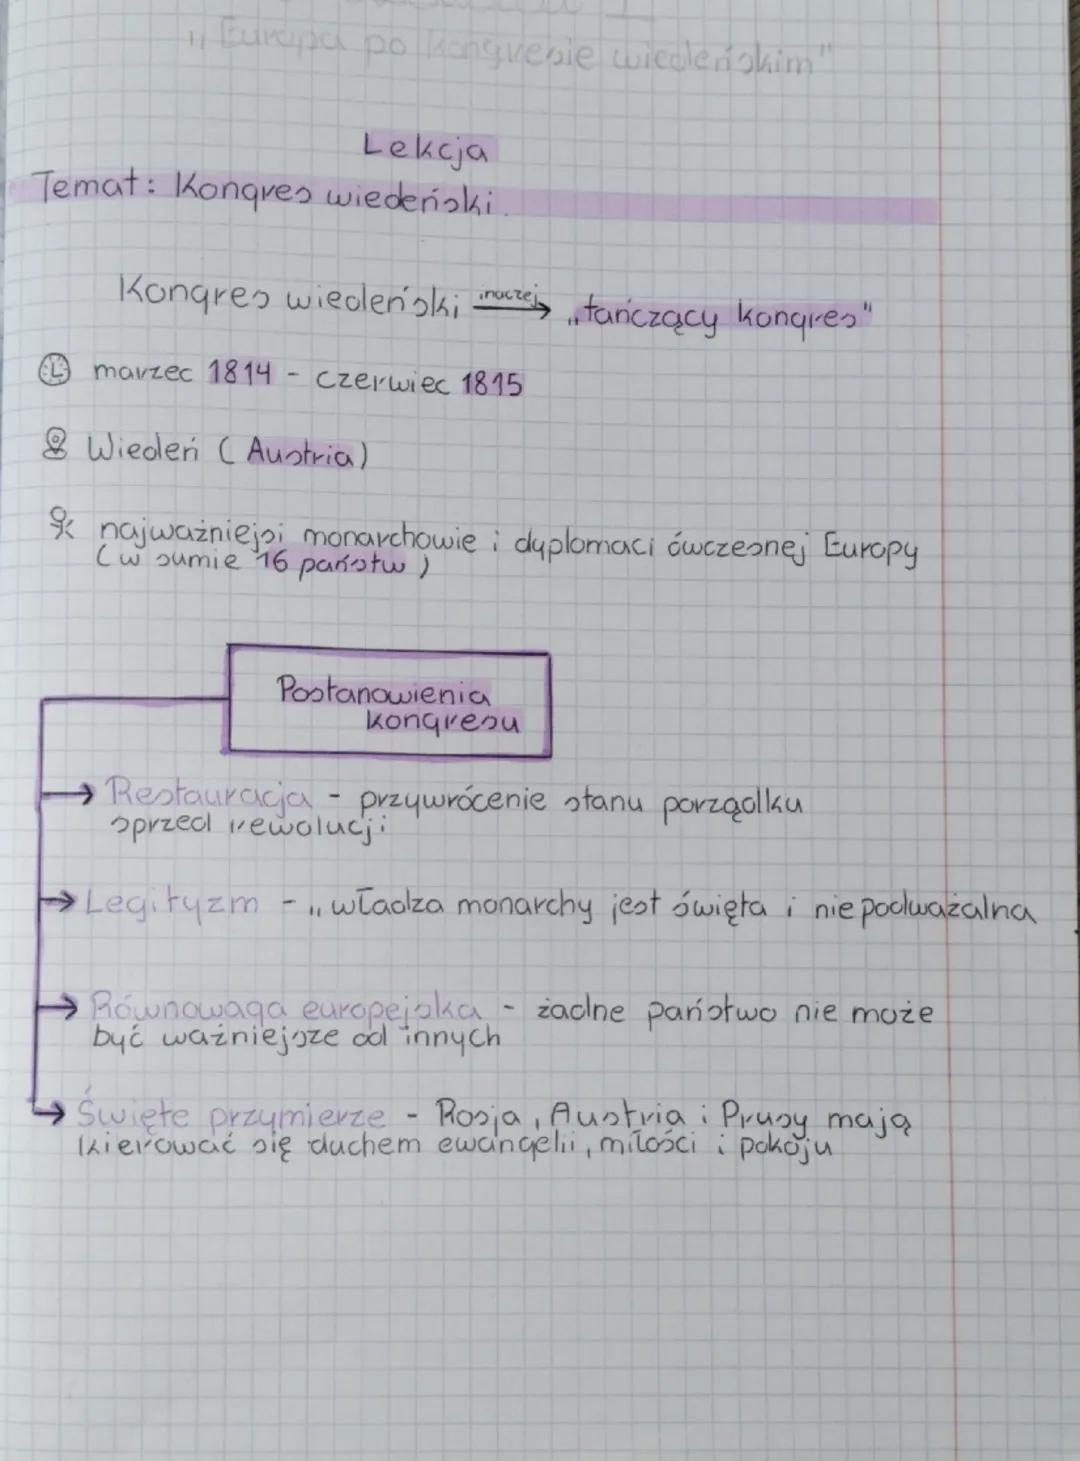 "Europa po kongresie wiedeńskim"
Lekcja
Temat: Kongres wiedeński.
Kongres wiedeński inaczej → "tańczący kongres"
marzec 1814 - czerwiec 1815
Wiedeń (Austria)
najważniejsi monarchowie i dyplomaci ówczesnej Europy
(w sumie 16 państw)
Postanowienia
kongresu
→ Restauracja - przywrócenie stanu porządku
sprzed rewolucji
→ Legityzm - "władza monarchy jest święta i niepodważalna
→ Równowaga europejska - żadne państwo nie może
być ważniejsze od innych
→ Święte przymierze - Rosja, Austria i Prusy mają
kierować się duchem ewangelii, miłości i pokoju